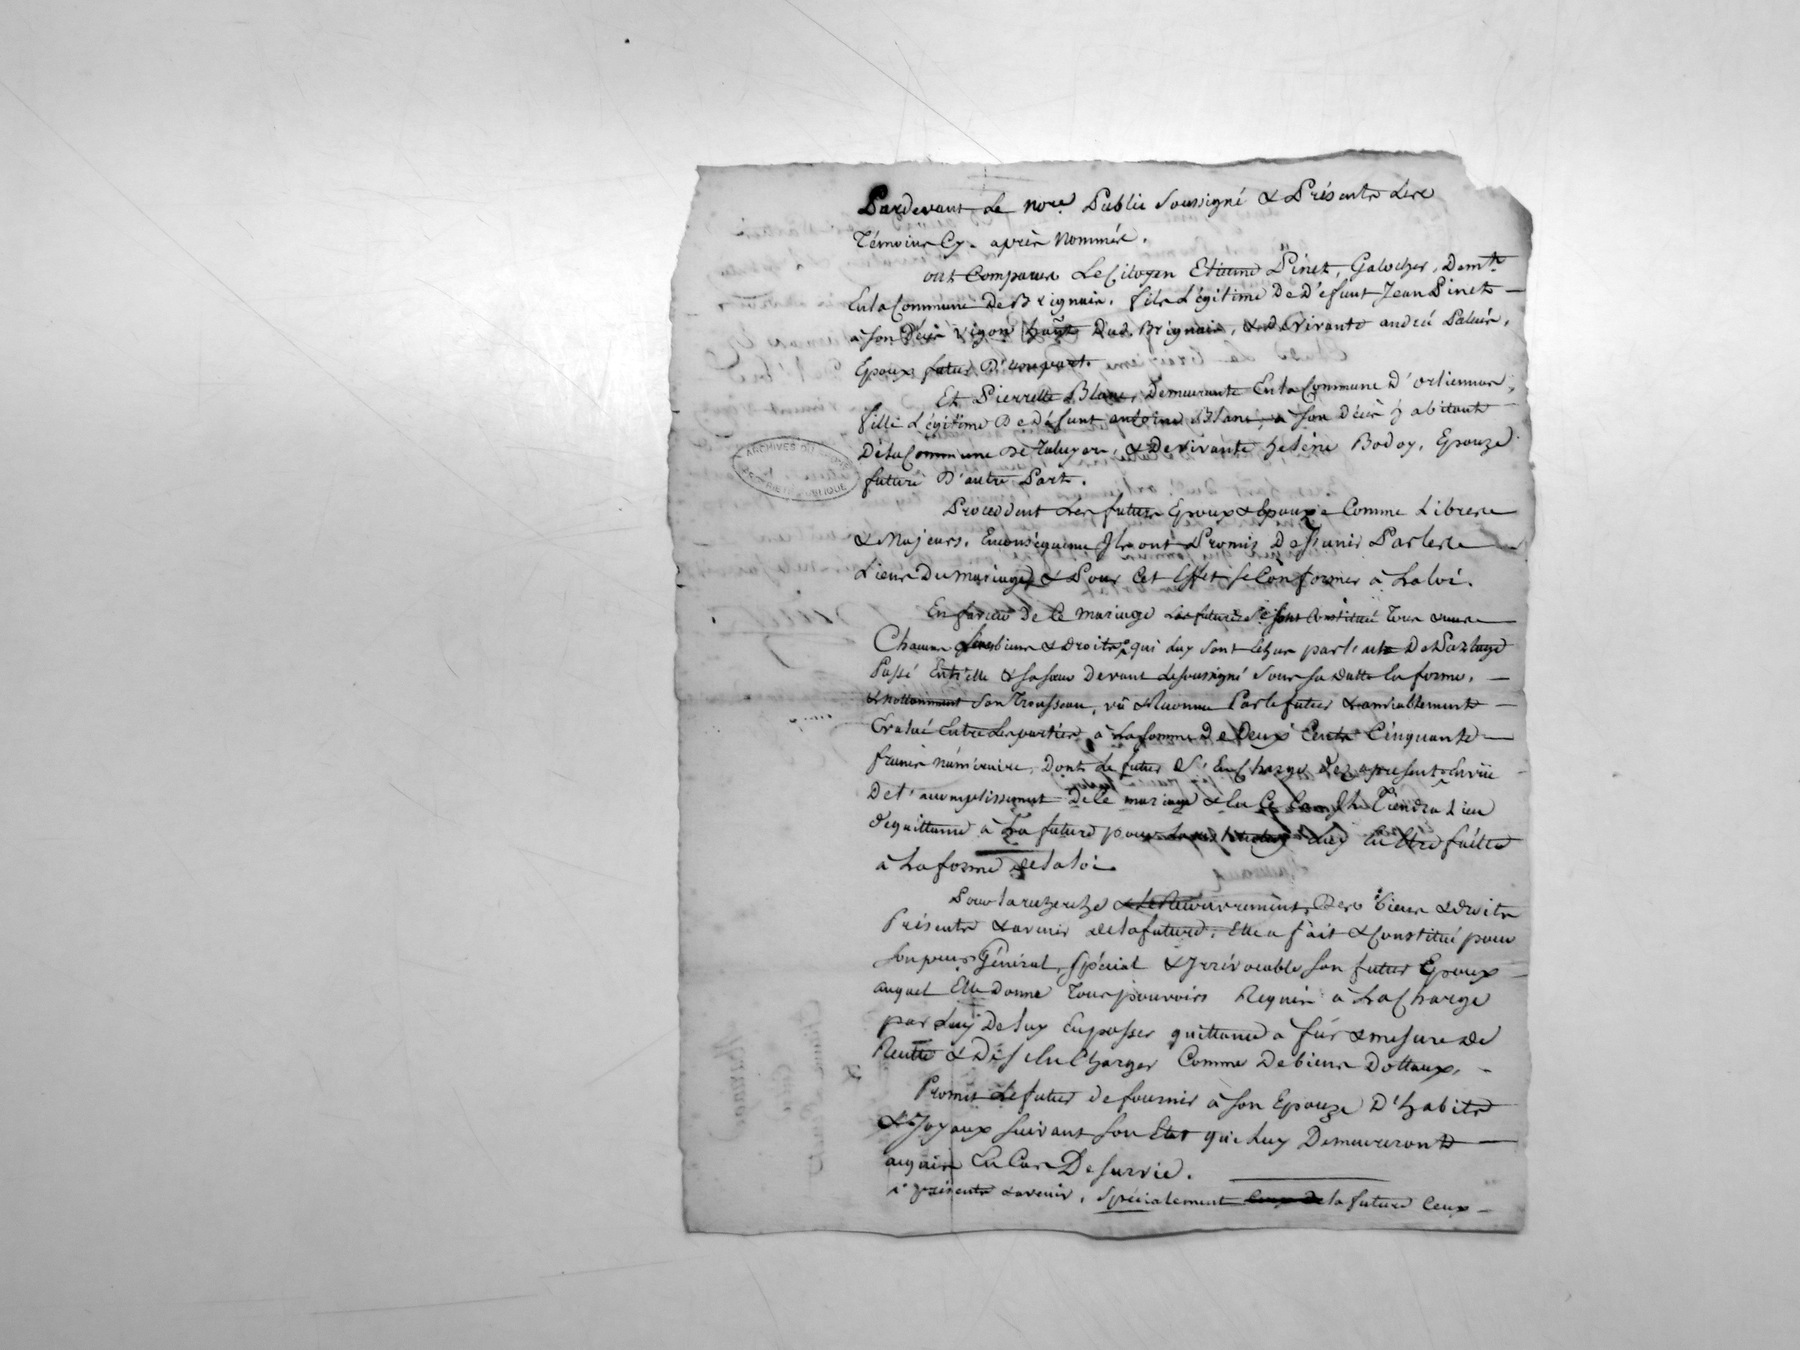 Pardevant Le no.re Public Soussigné & Présents Les
Témoins Cy- après Nommés.
ont Comparus Le Citoyen Etienne Pinet, Galocher, Dem.t
En la Commune De Brignais, fils Légitime De Défunt Jean Pinet
à Son Décès vigon Dud. Brignais, & De vivante
Epoux futur D'une part.
Et Pierrette Blanc, Demeurante En la Commune D'orliennas,
fille Légitime De Défunt antoine Blanc, à Son Décès habitant
De la Commune De Taluyers, & De vivante helène Bodoy, Epouze
future D'autre Part.
ARCHIVES DU RHÔNE
PROPRIÉTÉ PUBLIQUE
Procedent Les futurs Epoux & Epouze Comme Libres
& Majeurs. En conséquence Ils ont Promis De S'unir Par les
Liens Du mariage & Pour Cet Effet se Conformer à La loi.
En faveur de Ce mariage Les futurs Se sont Constitué Tous &
Chacuns Leurs biens & Droits qui Luy sont Echus par l'acte De Partage
Passé Entr'elle & Sa sœur Devant Le soussigné Sous Sa Datte En forme,
& Nottamment Son Trousseau, vû & Reconnu Par le futur & amiablement
Evalué Entre Les parties, à La somme De Deux Cents Cinquante
francs Numéraire, Dont Le futur S'En Charge Dez apresent En vüe
De l'accomplissement De Ce mariage & En Ce Cas Il Tiendra Lieu
De quittance à La future pour Luy En Etre faitte
à La forme De la loi
Pour la recherche & Le Recouvrement, Des biens & Droits
Présents & avenir De la future, Elle a fait & Constitué pour
Son procur. Général, Spécial & Irrévocable Son futur Epoux
auquel Elle Donne Tous pouvoirs Requis à La Charge
par Luy De Luy En passer quittance à fur & mesure De
Recette & D'S'En Charger Comme De biens Dottaux.
Promet Le futur De fournir à Son Epouze D'habits
& Joyaux Suivant Son Etat qui Luy Demeureront
acquis En Cas De Survie.
présents & avenir, Spécialement la future Ceux